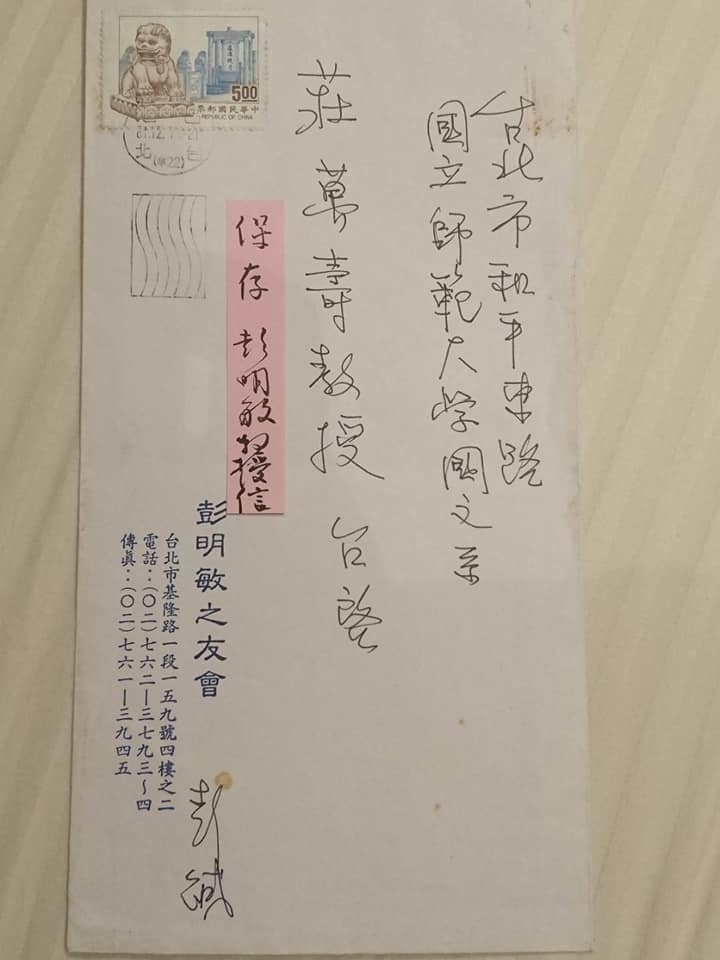 台北市和平東路
國立師範大学國文系
莊萬壽教授 台啓
保存 彭明敏教授信
彭明敏之友會
台北市基隆路一段一五九號四樓之二
電話：(〇二)七六二—三七九三～四
傳真：(〇二)七六一—三九四五
彭緘
5.00
中華民國郵票
REPUBLIC OF CHINA
台
北